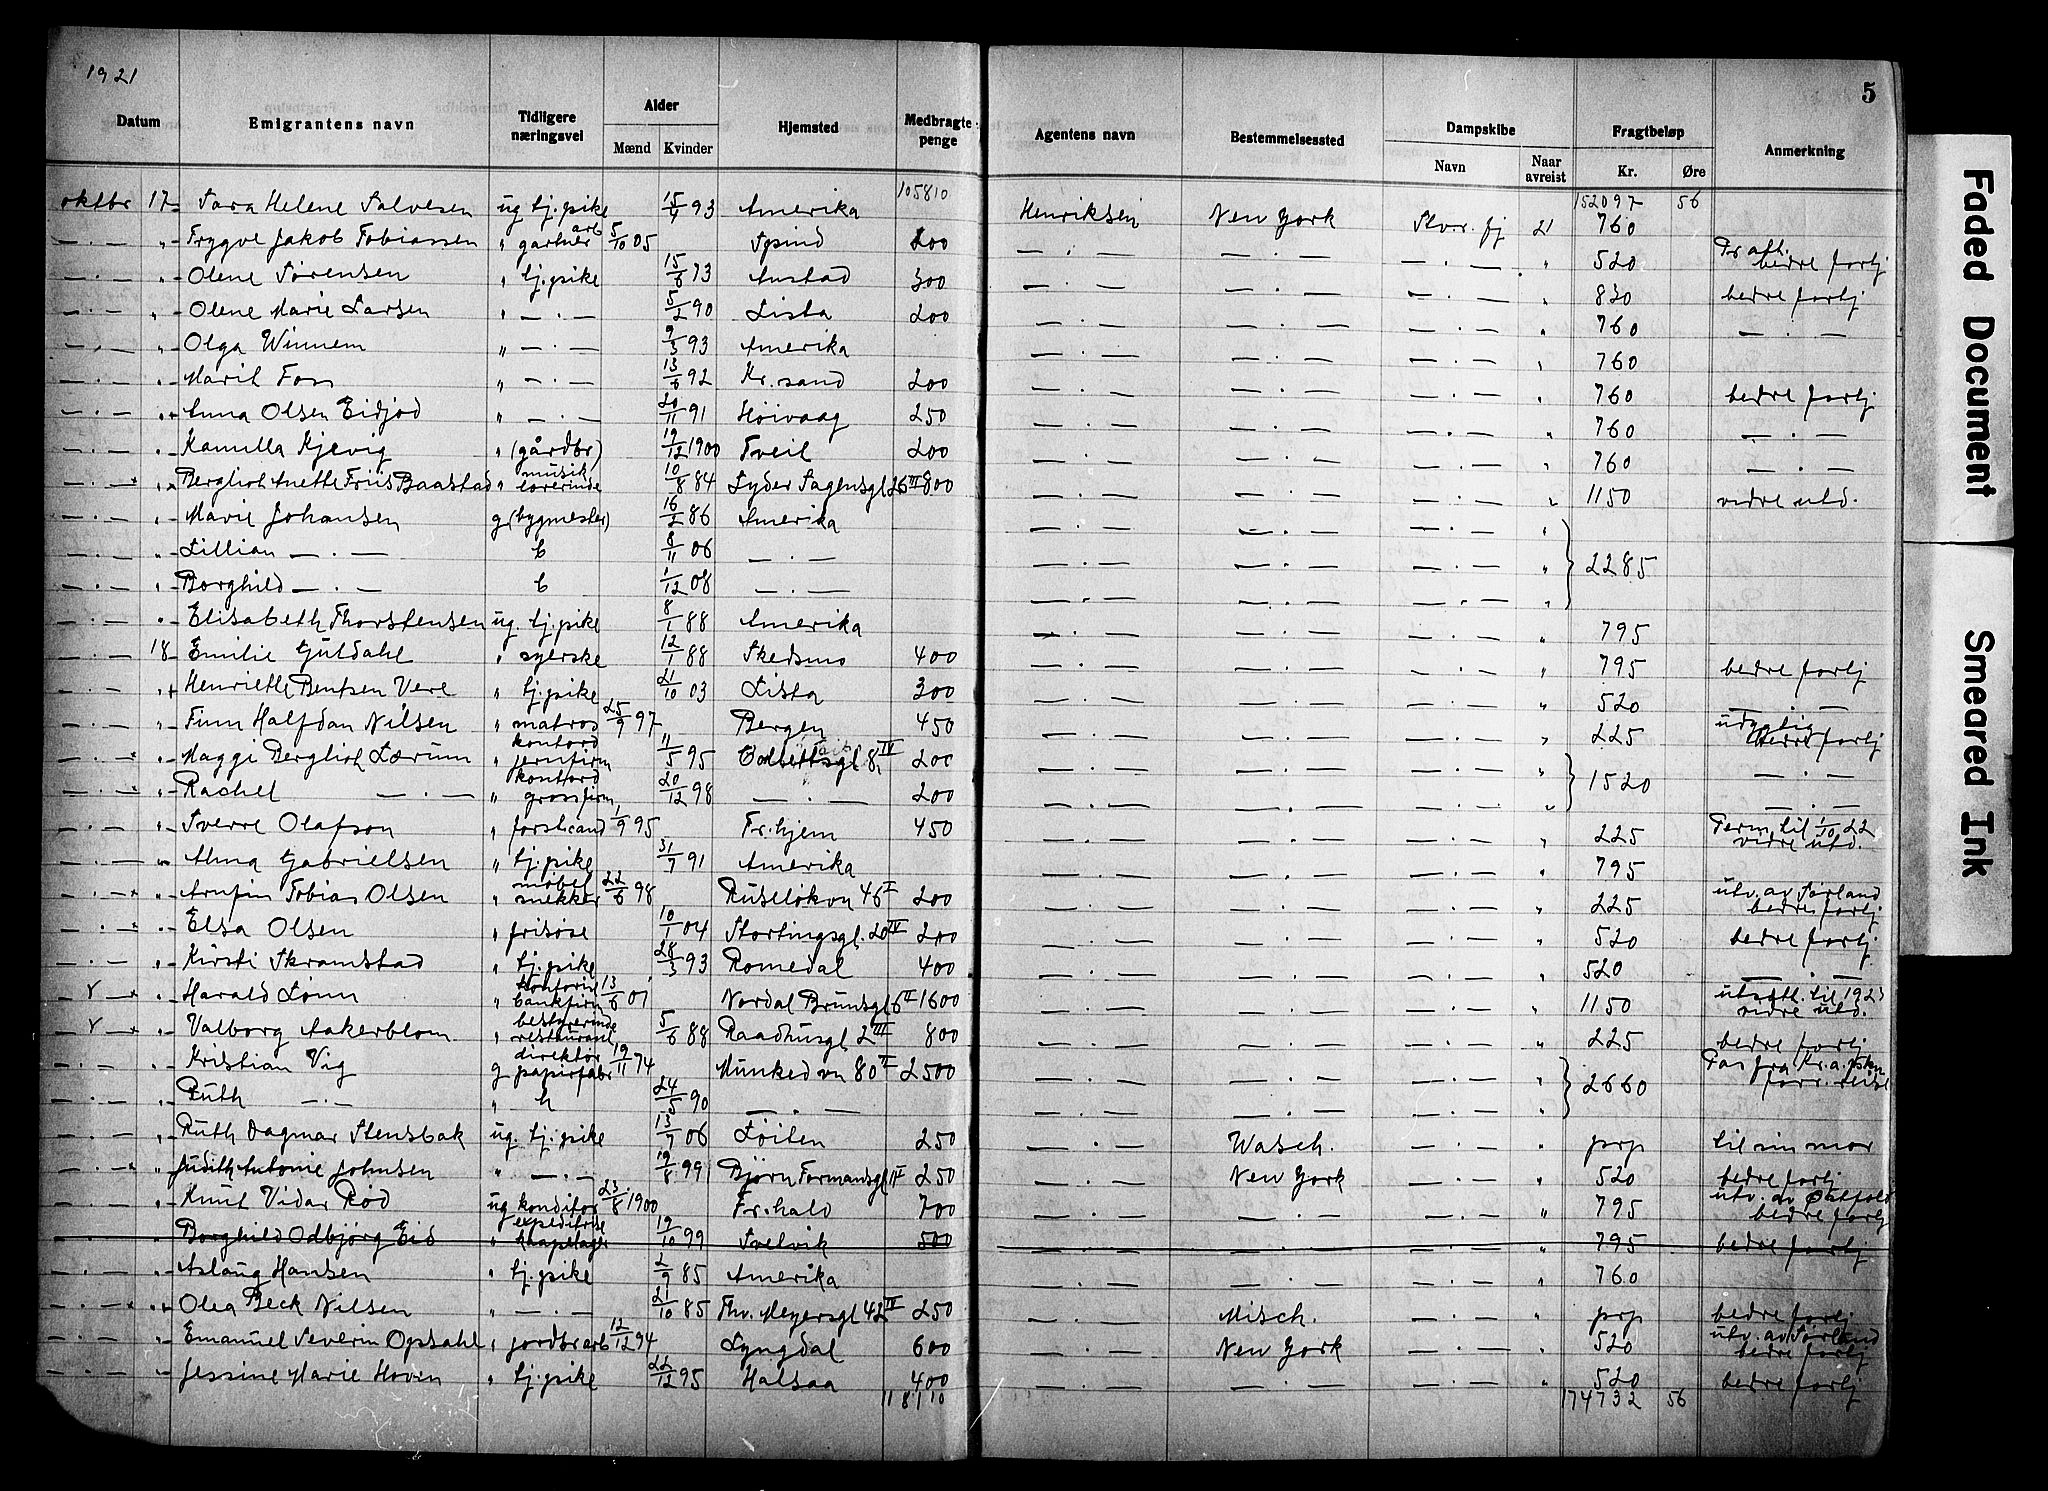 1921
5
Datum | Emigrantens navn | Tidligere næringsvei | Alder Mænd Kvinder | Hjemsted | Medbragte penge | Agentens navn | Bestemmelsessted | Dampskibe Navn Naar avreist | Fragtbeløp Kr. Øre | Anmerkning
105810 152097 56
oktbr 17 Sara Helene Salvesen ug tj.pike 15/4 93 Amerika Henriksen New York Stvr. fj 21 760
— . — " Trygve Jakob Tobiassen " gartner arb 5/10 05 Spind 200 — . — — . — — . — " 520 Pr att. bedre fortj
— . — " Olene Sørensen " tj.pike 15/6 73 Austad 300 — . — — . — — . — " 830 bedre fortj
— . — " Olene Marie Larsen " — . — 5/2 90 Lista 200 — . — — . — — . — " 760 — . —
— . — " Olga Winnem " — . — 9/3 93 Amerika — . — — . — — . — " 760
— . — " Marit Foss " — . — 13/6 92 Kr.sand 200 — . — — . — — . — " 760 bedre fortj
— . — " Anna Olsen Eidjod " — . — 20/11 91 Høivaag 250 — . — — . — — . — " 760 — . —
— . — " Kamilla Kjevig " (gårdbr) 19/12 1900 Tveit 200 — . — — . — — . — " 760 — . —
— . — " Bergliot Anette Friis Baastad " musik lærerinde 10/8 84 Lyder Sagensgt 26 III 800 — . — — . — — . — " 1150 vidre utd.
— . — " Marie Johansen g (bygmester) 16/2 86 Amerika — . — — . — — . — "
— . — " Lillian — . — b 8/11 06 — . — — . — — . — — . — " 2285
— . — " Borghild — . — b 1/12 08 — . — — . — — . — — . — "
— . — " Elisabeth Thorstensen ug. tj.pike 8/1 88 Amerika — . — — . — — . — " 795
— . — 18 Emilie Guldahl " syerske 12/1 88 Skedsmo 400 — . — — . — — . — " 795 bedre fortj
— . — " Henriette Bentsen Vere " tj.pike 21/10 03 Lista 300 — . — — . — — . — " 520 — . —
— . — " Finn Halfdan Nilsen " matros 25/9 97 Bergen 450 — . — — . — — . — " 225 bedre fortj
— . — " Maggi Bergliot Lærum " kontord jernfirm 11/5 95 8 IV 200 — . — — . — — . — "
— . — " Rachel — . — " kontord grossfirm 20/12 98 — . — 200 — . — — . — — . — " 1520 — . —
— . — " Sverre Olafson " forstkand 1/9 95 Fr.hjem 450 — . — — . — — . — " 225 Perm. til 1/10 22 vidre utd.
— . — " Alma Gabrielsen " tj.pike 31/7 91 Amerika — . — — . — — . — " 795
— . — " Arnfin Tobias Olsen " møbel snekker 22/6 98 Ruseløkvn 46 I 200 — . — — . — — . — " 225 utv. av Sørland bedre fortj
— . — " Elsa Olsen " frisøse 10/1 04 Stortingsgt. 20 IV 200 — . — — . — — . — " 520 bedre fortj.
— . — " Kirsti Skramstad " tj.pike 28/3 93 Romedal 400 — . — — . — — . — " 520 — . —
— . — " Harald Lønn " kontorist bankfirm 13/6 01 Nordal Brunsgt 6 II 1600 — . — — . — — . — " 1150 utsatt. til 1923 vidre utd.
— . — " Valborg Aakerblom " bestyrerinde restaurant 5/6 88 Raadhusgt 2 III 800 — . — — . — — . — " 225 bedre fortj
— . — " Kristian Vig g direktør papirfabr 19/11 74 Munkedvn 80 II 2500 — . — — . — — . — " Pas fra Kr.a. forr. reise
— . — " Ruth — . — " h 24/5 90 — . — — . — — . — — . — " 2660
— . — " Ruth Dagmar Stensbak ug. tj.pike 13/7 06 Løiten 250 — . — Wasch. — . — " prp til sin mor
— . — " Judith Antonie Johnsen " — . — 19/8 99 Bjørn Farmansgt 250 — . — New York — . — " 520 bedre fortj
— . — " Knut Vidar Rød ug konditor 23/8 1900 Fr.hald 700 — . — — . — — . — " 795 utv. av Østfold bedre fortj
— . — " Borghild Odbjørg Eid " expeditrise kaapelager 19/10 99 Svelvik 500 — . — — . — — . — " 795 bedre fortj
— . — " Aslaug Hansen " tj.pike 2/9 85 Amerika — . — — . — — . — " 760
— . — " Olea Beck Nilsen " — . — 21/10 85 Thv. Meyersgt 42 IV 250 — . — Misch. — . — " prp bedre fortj
— . — " Emanuel Severin Opsahl " jordbrarb 12/12 94 Lyngdal 600 — . — New York — . — " 520 utv. av Sørland bedre fortj
— . — " Jessine Marie Hoven " tj.pike 22/12 95 Halsaa 400 — . — — . — — . — " 520 bedre fortj
118110 174732 56
Faded Document
Smeared Ink